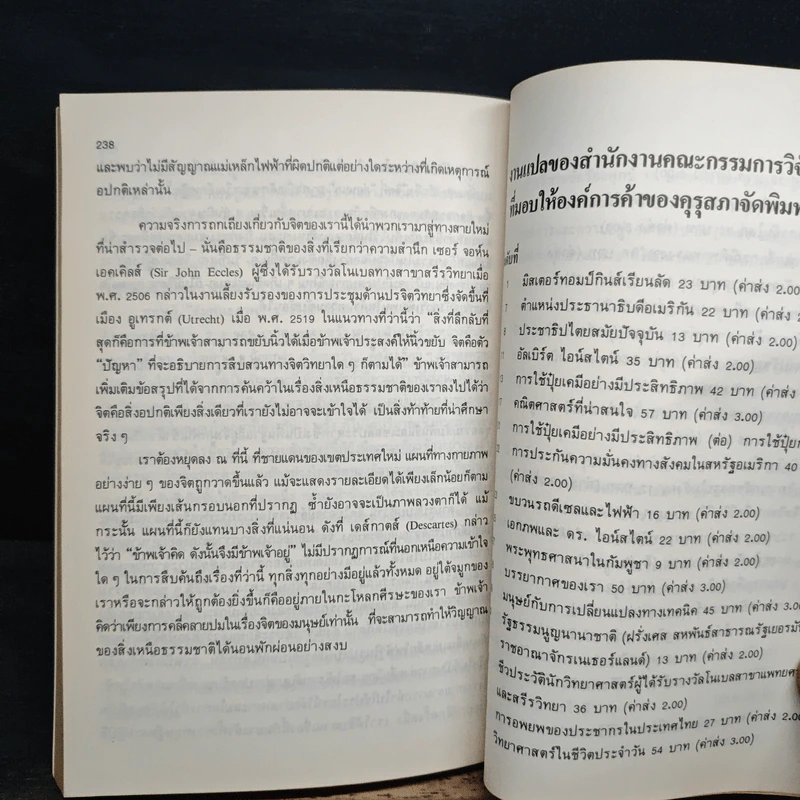 238
และพบว่าไม่มีสัญญาณแม่เหล็กไฟฟ้าที่ผิดปกติแต่อย่างใดระหว่างที่เกิดเหตุการณ์
อปกติเหล่านั้น
ความจริงการถกเถียงเกี่ยวกับจิตของเรานี้ได้นำพวกเรามาสู่ทางสายใหม่
ที่น่าสำรวจต่อไป – นั่นคือธรรมชาติของสิ่งที่เรียกว่าความสำนึก เซอร์ จอห์น
เอคเคิลส์ (Sir John Eccles) ผู้ซึ่งได้รับรางวัลโนเบลทางสาขาสรีรวิทยาเมื่อ
พ.ศ. 2506 กล่าวในงานเลี้ยงรับรองของการประชุมด้านปรจิตวิทยาซึ่งจัดขึ้นที่
เมือง อูเทรกต์ (Utrecht) เมื่อ พ.ศ. 2519 ในแนวทางที่ว่านี้ว่า “สิ่งที่ลึกลับที่
สุดก็คือการที่ข้าพเจ้าสามารถขยับนิ้วได้เมื่อข้าพเจ้าประสงค์ให้นิ้วขยับ จิตคือตัว
“ปัญหา” ที่จะอธิบายการสืบสวนทางจิตวิทยาใด ๆ ก็ตามได้” ข้าพเจ้าสามารถ
เพิ่มเติมข้อสรุปที่ได้จากการค้นคว้าในเรื่องสิ่งเหนือธรรมชาติของเราลงไปได้ว่า
จิตคือสิ่งอปกติเพียงสิ่งเดียวที่เรายังไม่อาจจะเข้าใจได้ เป็นสิ่งท้าท้ายที่น่าศึกษา
จริง ๆ
เราต้องหยุดลง ณ ที่นี้ ที่ชายแดนของเขตประเทศใหม่ แผนที่ทางกายภาพ
อย่างง่าย ๆ ของจิตถูกวาดขึ้นแล้ว แม้จะแสดงรายละเอียดได้เพียงเล็กน้อยก็ตาม
แผนที่นี้มีเพียงเส้นกรอบนอกที่ปรากฏ ซ้ำยังอาจจะเป็นภาพลวงตาก็ได้ แม้
กระนั้น แผนที่นี้ก็ยังแทนบางสิ่งที่แน่นอน ดังที่ เดส์กาตส์ (Descartes) กล่าว
ไว้ว่า “ข้าพเจ้าคิด ดังนั้นจึงมีข้าพเจ้าอยู่” ไม่มีปรากฏการณ์ที่นอกเหนือความเข้าใจ
ใด ๆ ในการสืบค้นถึงเรื่องที่ว่านี้ ทุกสิ่งทุกอย่างมีอยู่แล้วทั้งหมด อยู่ใต้จมูกของ
เราหรือจะกล่าวให้ถูกต้องยิ่งขึ้นก็คืออยู่ภายในกะโหลกศีรษะของเรา ข้าพเจ้า
คิดว่าเพียงการคลี่คลายปมในเรื่องจิตของมนุษย์เท่านั้น ที่จะสามารถทำให้วิญญาณ
ของสิ่งเหนือธรรมชาติได้นอนพักผ่อนอย่างสงบ
งานแปลของสำนักงานคณะกรรมการวิจัย
ที่มอบให้องค์การค้าของคุรุสภาจัดพิมพ์
มิสเตอร์ทอมป์กินส์เรียนลัด 23 บาท (ค่าส่ง 2.00)
ตำแหน่งประธานาธิบดีอเมริกัน 22 บาท (ค่าส่ง 2.00)
ประชาธิปไตยสมัยปัจจุบัน 13 บาท (ค่าส่ง 2.00)
อัลเบิร์ต ไอน์สไตน์ 35 บาท (ค่าส่ง 2.00)
การใช้ปุ๋ยเคมีอย่างมีประสิทธิภาพ 42 บาท (ค่าส่ง
คณิตศาสตร์ที่น่าสนใจ 57 บาท (ค่าส่ง 3.00)
การใช้ปุ๋ยเคมีอย่างมีประสิทธิภาพ (ต่อ) การใช้ปุ๋ย
การประกันความมั่นคงทางสังคมในสหรัฐอเมริกา 40
(ค่าส่ง 2.00)
ขบวนรถดีเซลและไฟฟ้า 16 บาท (ค่าส่ง 2.00)
เอกภพและ ดร. ไอน์สไตน์ 22 บาท (ค่าส่ง 2.00)
พระพุทธศาสนาในกัมพูชา 9 บาท (ค่าส่ง 2.00)
บรรยากาศของเรา 50 บาท (ค่าส่ง 3.00)
มนุษย์กับการเปลี่ยนแปลงทางเทคนิค 45 บาท (ค่าส่ง 3.00)
รัฐธรรมนูญนานาชาติ (ฝรั่งเศส สหพันธ์สาธารณรัฐเยอรมัน
ราชอาณาจักรเนเธอร์แลนด์) 13 บาท (ค่าส่ง 2.00)
ชีวประวัตินักวิทยาศาสตร์ผู้ได้รับรางวัลโนเบลสาขาแพทยศ
และสรีรวิทยา 36 บาท (ค่าส่ง 2.00)
การอพยพของประชากรในประเทศไทย 27 บาท (ค่าส่ง 2.00
วิทยาศาสตร์ในชีวิตประจำวัน 54 บาท (ค่าส่ง 3.00)